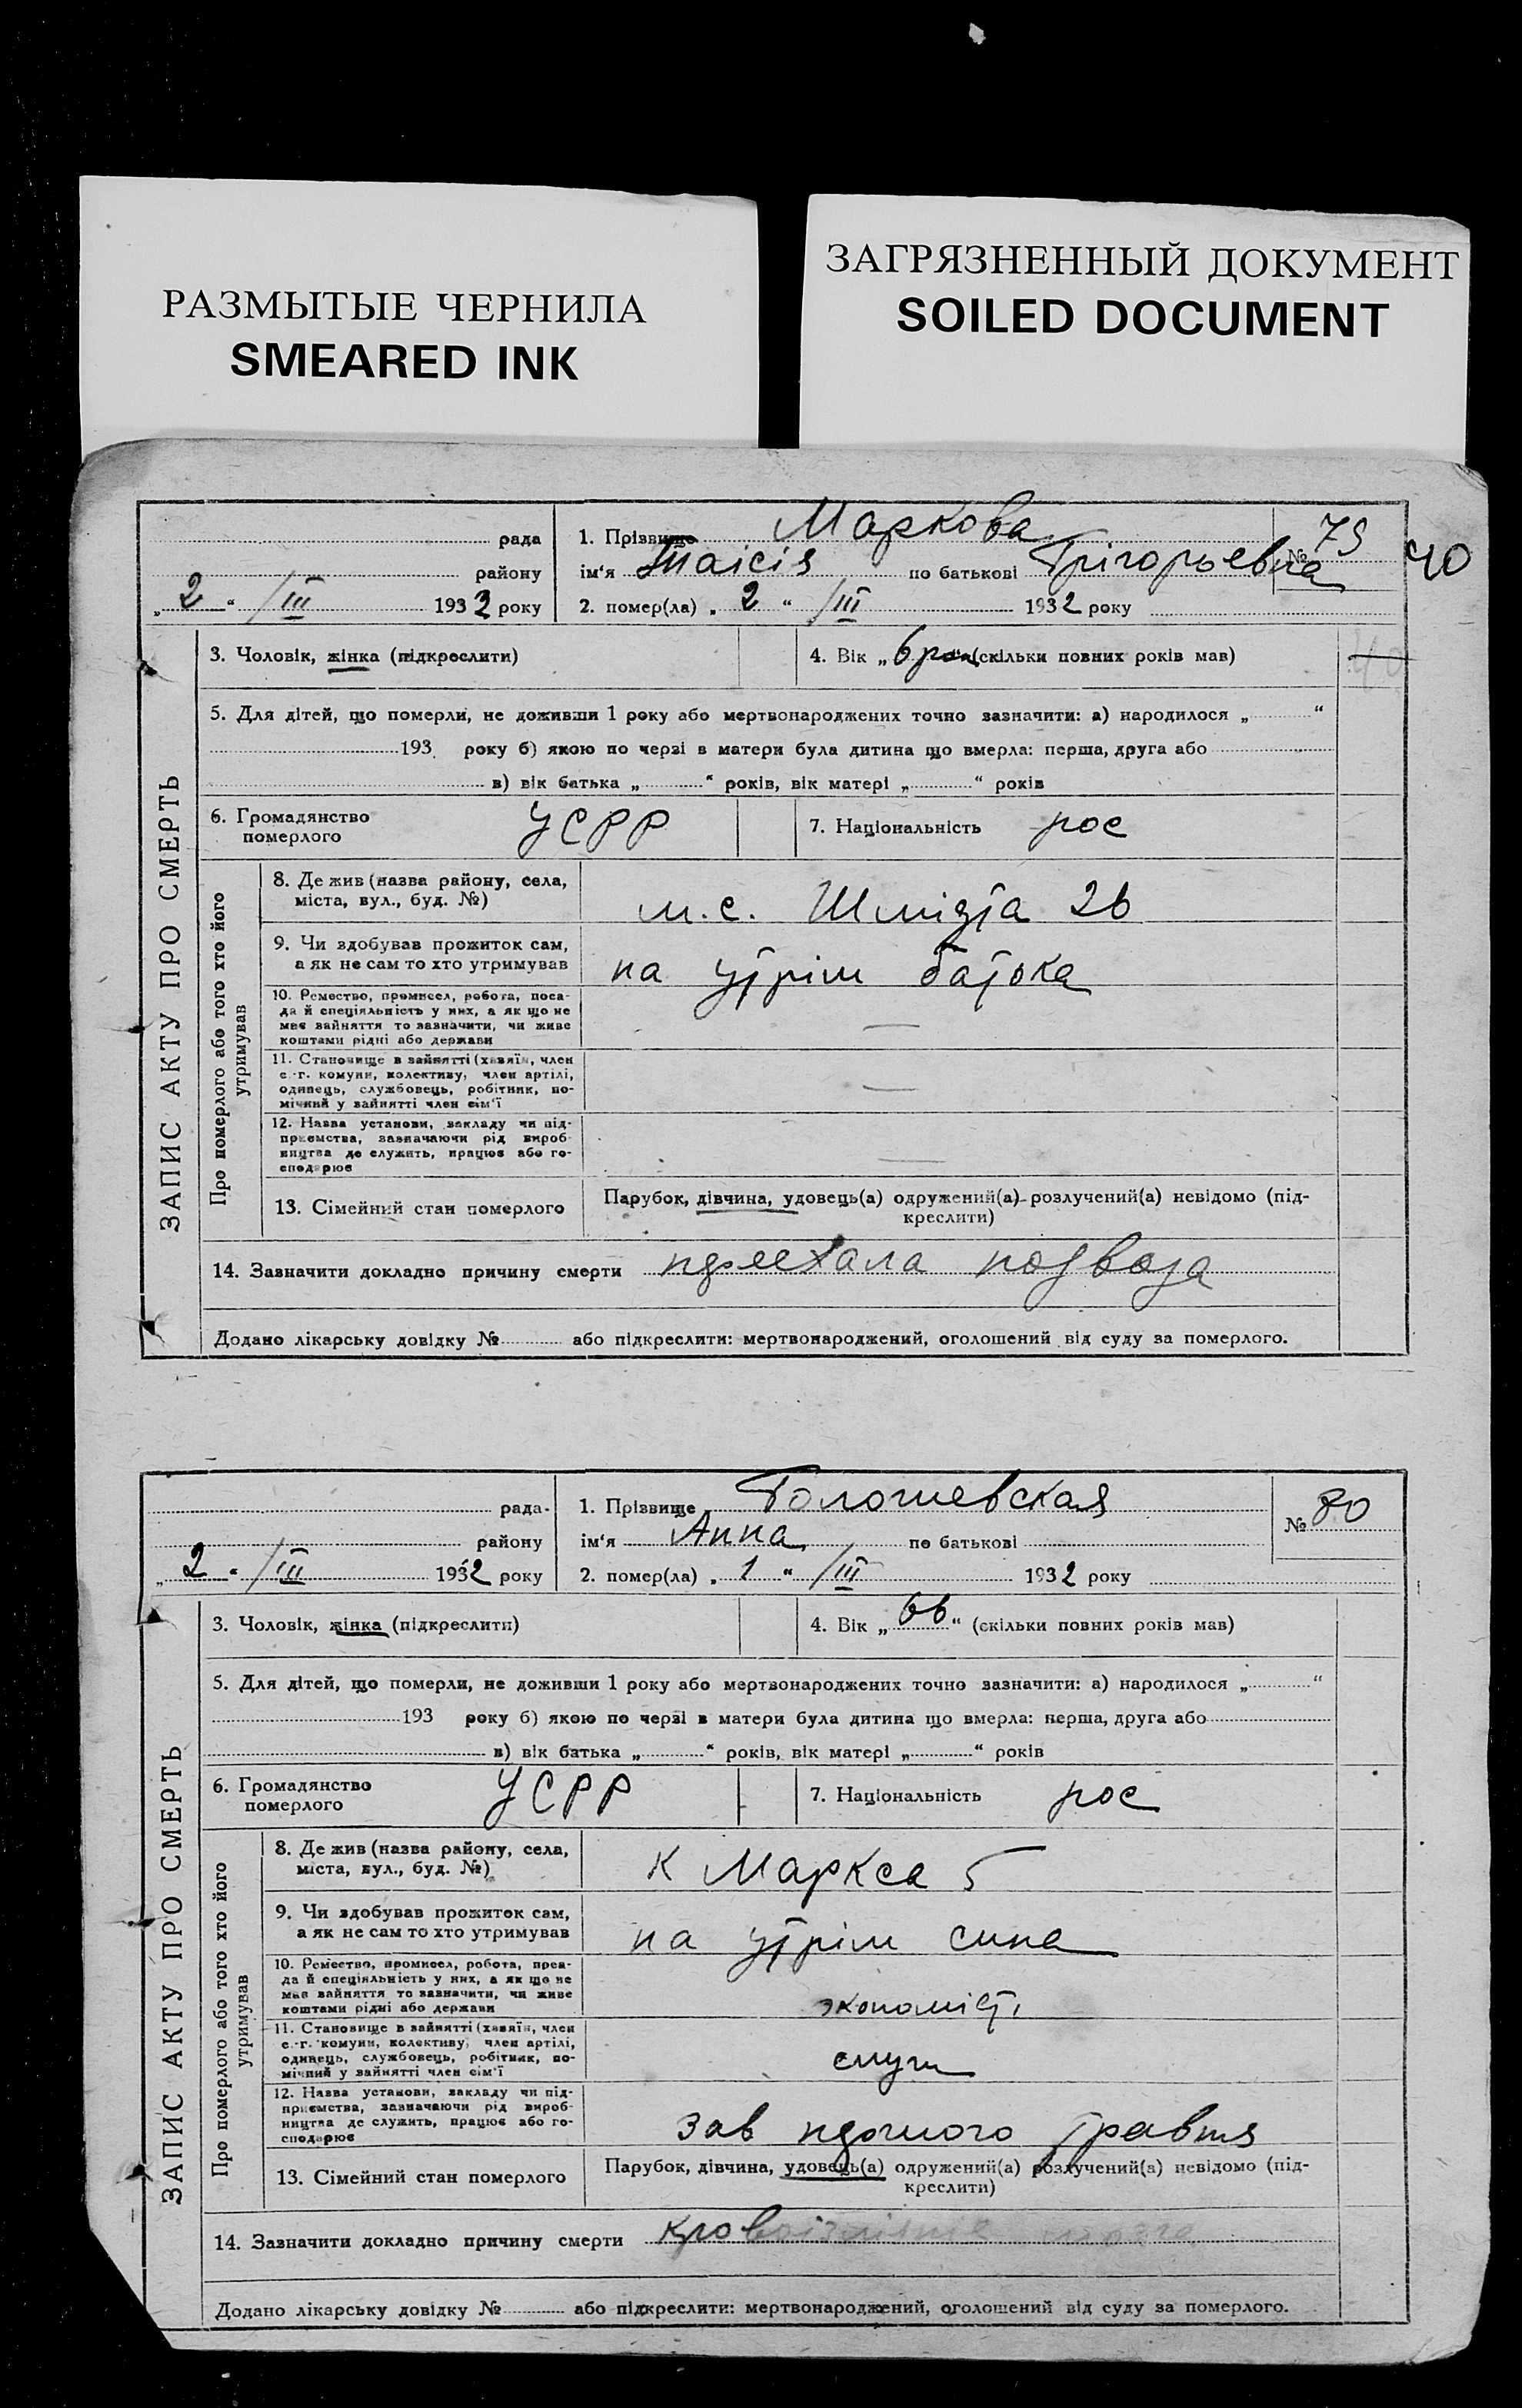 РАЗМЫТЫЕ ЧЕРНИЛА
SMEARED INK
ЗАГРЯЗНЕННЫЙ ДОКУМЕНТ
SOILED DOCUMENT
рада
району
„ 2 “ /III 1932 року
1. Прізвище Маркова
ім'я Таісія по батькові Грігорьевна
2. помер(ла) „ 2 “ /III 1932 року
№ 79
40
ЗАПИС АКТУ ПРО СМЕРТЬ
3. Чоловік, жінка (підкреслити)
4. Вік „ 6 рок “ (скільки повних років мав)
5. Для дітей, що померли, не доживши 1 року або мертвонароджених точно зазначити: а) народилося „ “
193 року б) якою по черзі в матери була дитина що вмерла: перша, друга або
в) вік батька „ “ років, вік матері „ “ років
6. Громадянство
померлого
УСРР
7. Національність рос
Про померлого або того хто його
утримував
8. Де жив (назва району, села,
міста, вул., буд. №)
Шмідта 26
9. Чи здобував прожиток сам,
а як не сам то хто утримував
на утрім батька
10. Ремество, промисел, робота, поса-
да й спеціяльність у них, а як що не
має зайняття то зазначити, чи живе
коштами рідні або держави
—
11. Становище в зайнятті (хазяїн, член
с.-г. комуни, колективу, член артілі,
одинець, службовець, робітник, по-
мічний у зайнятті член сім'ї
—
12. Назва установи, закладу чи під-
приємства, зазначаючи рід вироб-
ництва де служить, працює або го-
сподарює
—
13. Сімейний стан померлого
Парубок, дівчина, удовець(а) одружений(а) розлучений(а) невідомо (під-
креслити)
14. Зазначити докладно причину смерти
Додано лікарську довідку № або підкреслити: мертвонароджений, оголошений від суду за померлого.
рада
району
„ 2 “ /III 1932 року
1. Прізвище
ім'я Анна по батькові
2. помер(ла) „ 1 “ /III 1932 року
№ 80
ЗАПИС АКТУ ПРО СМЕРТЬ
3. Чоловік, жінка (підкреслити)
4. Вік „ 66 “ (скільки повних років мав)
5. Для дітей, що померли, не доживши 1 року або мертвонароджених точно зазначити: а) народилося „ “
193 року б) якою по черзі в матери була дитина що вмерла: перша, друга або
в) вік батька „ “ років, вік матері „ “ років
6. Громадянство
померлого
УСРР
7. Національність рос
Про померлого або того хто його
утримував
8. Де жив (назва району, села,
міста, вул., буд. №)
К Маркса 5
9. Чи здобував прожиток сам,
а як не сам то хто утримував
на утрім сина
10. Ремество, промисел, робота, поса-
да й спеціяльність у них, а як що не
має зайняття то зазначити, чи живе
коштами рідні або держави
экономіст
11. Становище в зайнятті (хазяїн, член
с.-г. комуни, колективу, член артілі,
одинець, службовець, робітник, по-
мічний у зайнятті член сім'ї
служ
12. Назва установи, закладу чи під-
приємства, зазначаючи рід вироб-
ництва де служить, працює або го-
сподарює
зав травня
13. Сімейний стан померлого
Парубок, дівчина, удовець(а) одружений(а) розлучений(а) невідомо (під-
креслити)
14. Зазначити докладно причину смерти
Додано лікарську довідку № або підкреслити: мертвонароджений, оголошений від суду за померлого.